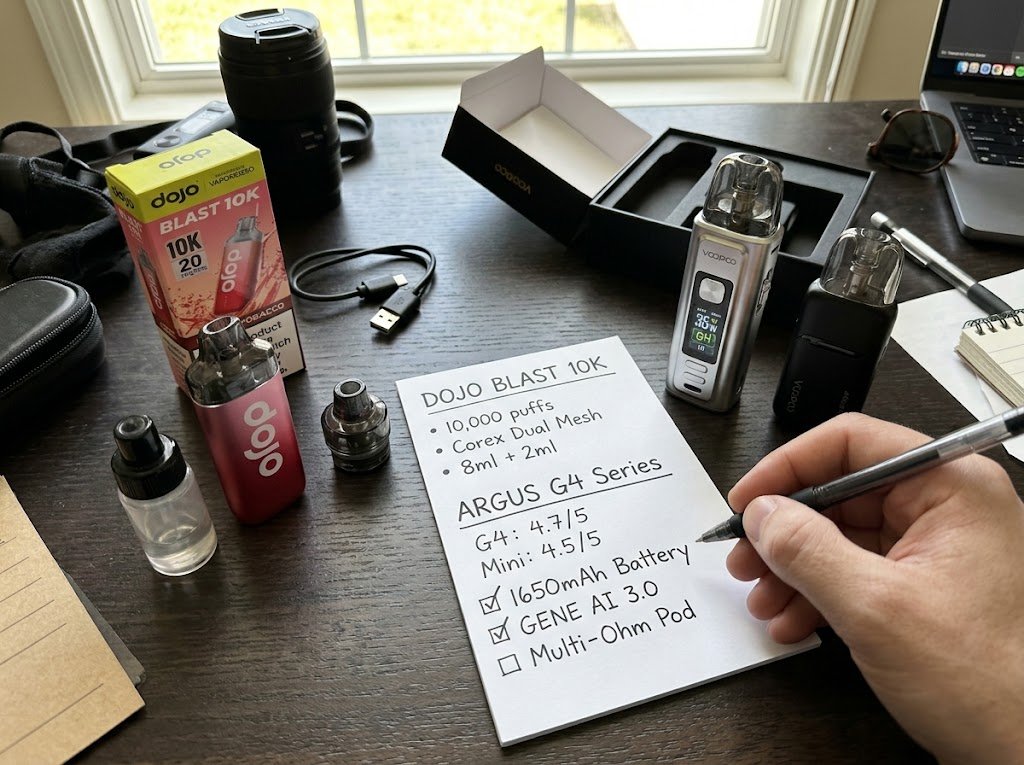 dojo
dojo
VAPORESSO
BLAST 10K
10K
20
dojo
TOBACCO
dojo
VOOPOO
VOOPOO
GH
VOOPOO
DOJO BLAST 10K
• 10,000 puffs
• Corex Dual Mesh
• 8ml + 2ml
ARGUS G4 Series
G4: 4.7/5
Mini: 4.5/5
☑ 1650mAh Battery
☑ GENE AI 3.0
☐ Multi-Ohm Pod